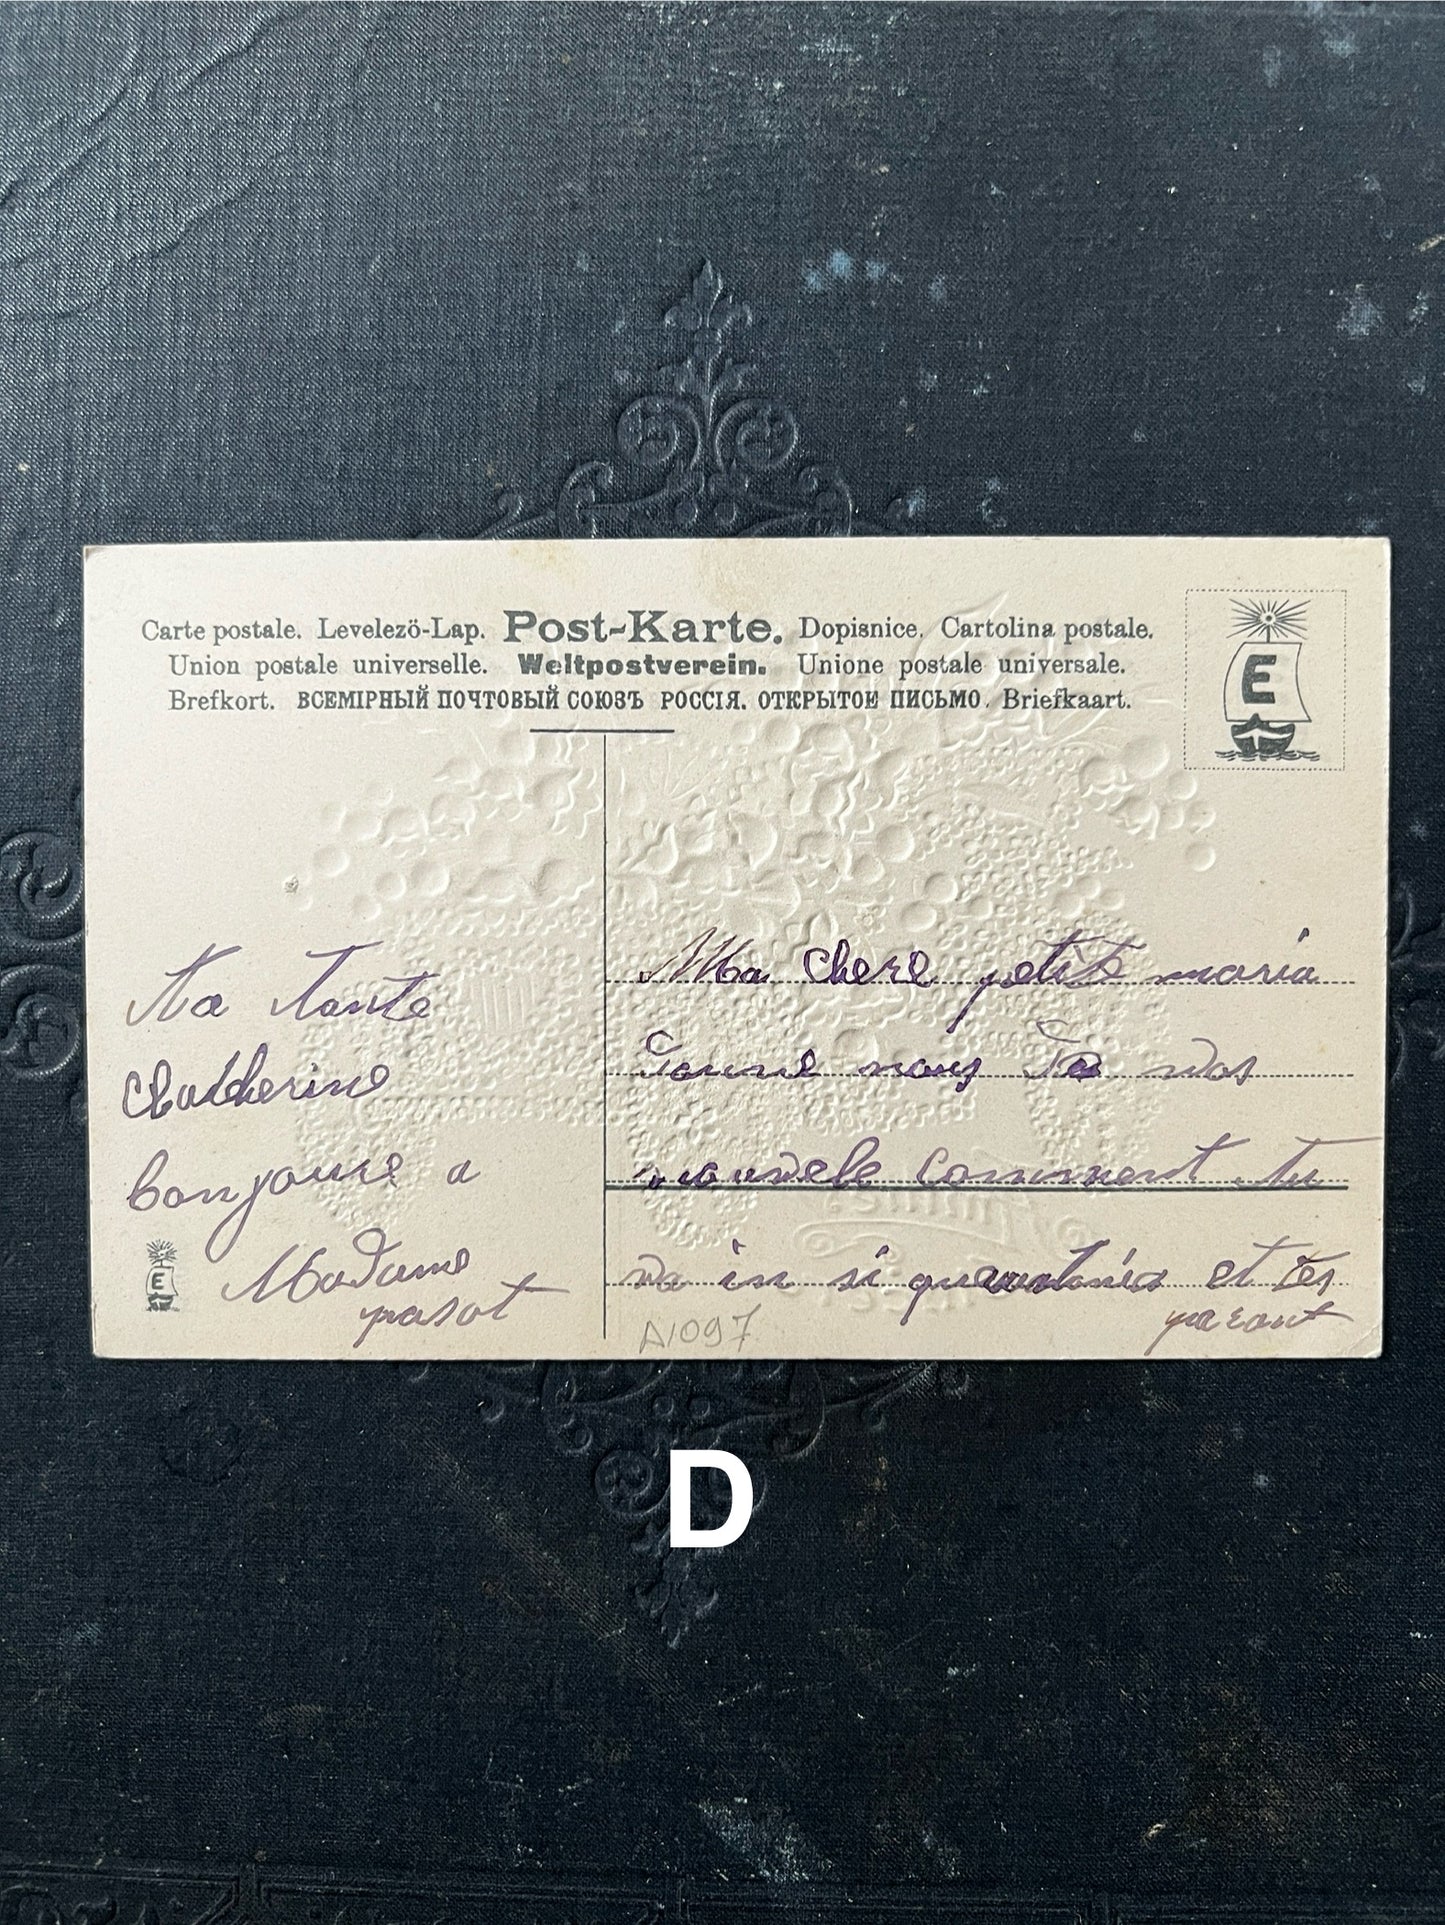 Carte postale. Levelezö-Lap. Post-Karte. Dopisnice. Cartolina postale.
Union postale universelle. Weltpostverein. Unione postale universale.
Brefkort. ВСЕМІРНЫЙ ПОЧТОВЫЙ СОЮЗЪ РОССІЯ. ОТКРЫТОЕ ПИСЬМО. Briefkaart.
E
Ta Tante
Chatherine
bonjoure a
Madame
pasot
E
Ma chere petite maria
Donne nous De vos
nouvele comment tu
va in si que et tes
parant
A1097
D